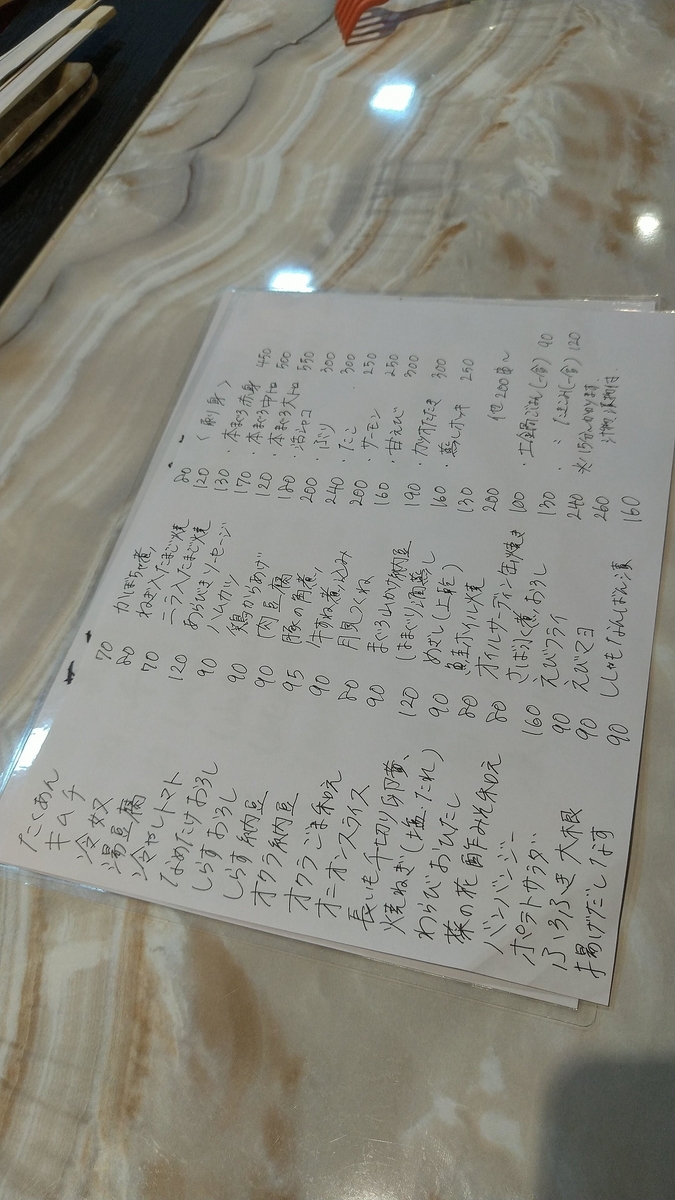 たくあん 70
キムチ 80
冷奴 70
湯豆腐 120
冷やしトマト 90
なめたけおろし 90
しらすおろし 90
しらす納豆 95
オクラ納豆 90
オクラごま和え 80
オニオンスライス 90
長いも千切り卵黄 120
焼ねぎ(塩・たれ) 90
わらびおひたし 80
菜の花酢みそ和え 80
バンバンジー 160
ポテトサラダ 90
ふろふき大根 90
揚げだしなす 90
かぼちゃ煮 80
ねぎ入たまご焼 120
ニラ入たまご焼 130
あらびきソーセージ 170
ハムカツ 120
鶏からあげ 180
肉豆腐 200
豚の角煮 240
牛すね煮込み 200
月見つくね 160
まぐろ山かけ納豆 190
はまぐり酒蒸し 160
めざし(上乾) 130
鮭ホイル焼 200
オイルサーディン缶焼き 100
さば水煮おろし 130
えびフライ 240
えびマヨ 260
ししゃもなんばん漬 160
〈刺身〉
・本まぐろ赤身 450
・本まぐろ中トロ 500
・本まぐろ大トロ 550
・活シャコ 300
・ぶり 300
・たこ 250
・サーモン 250
・甘えび 300
・カツオたたき 300
・蒸しホヤ 250
他 200
・土鍋ごはん(一合) 90
・〃 (一合) 120
※15分かかります
汁物、漬物付